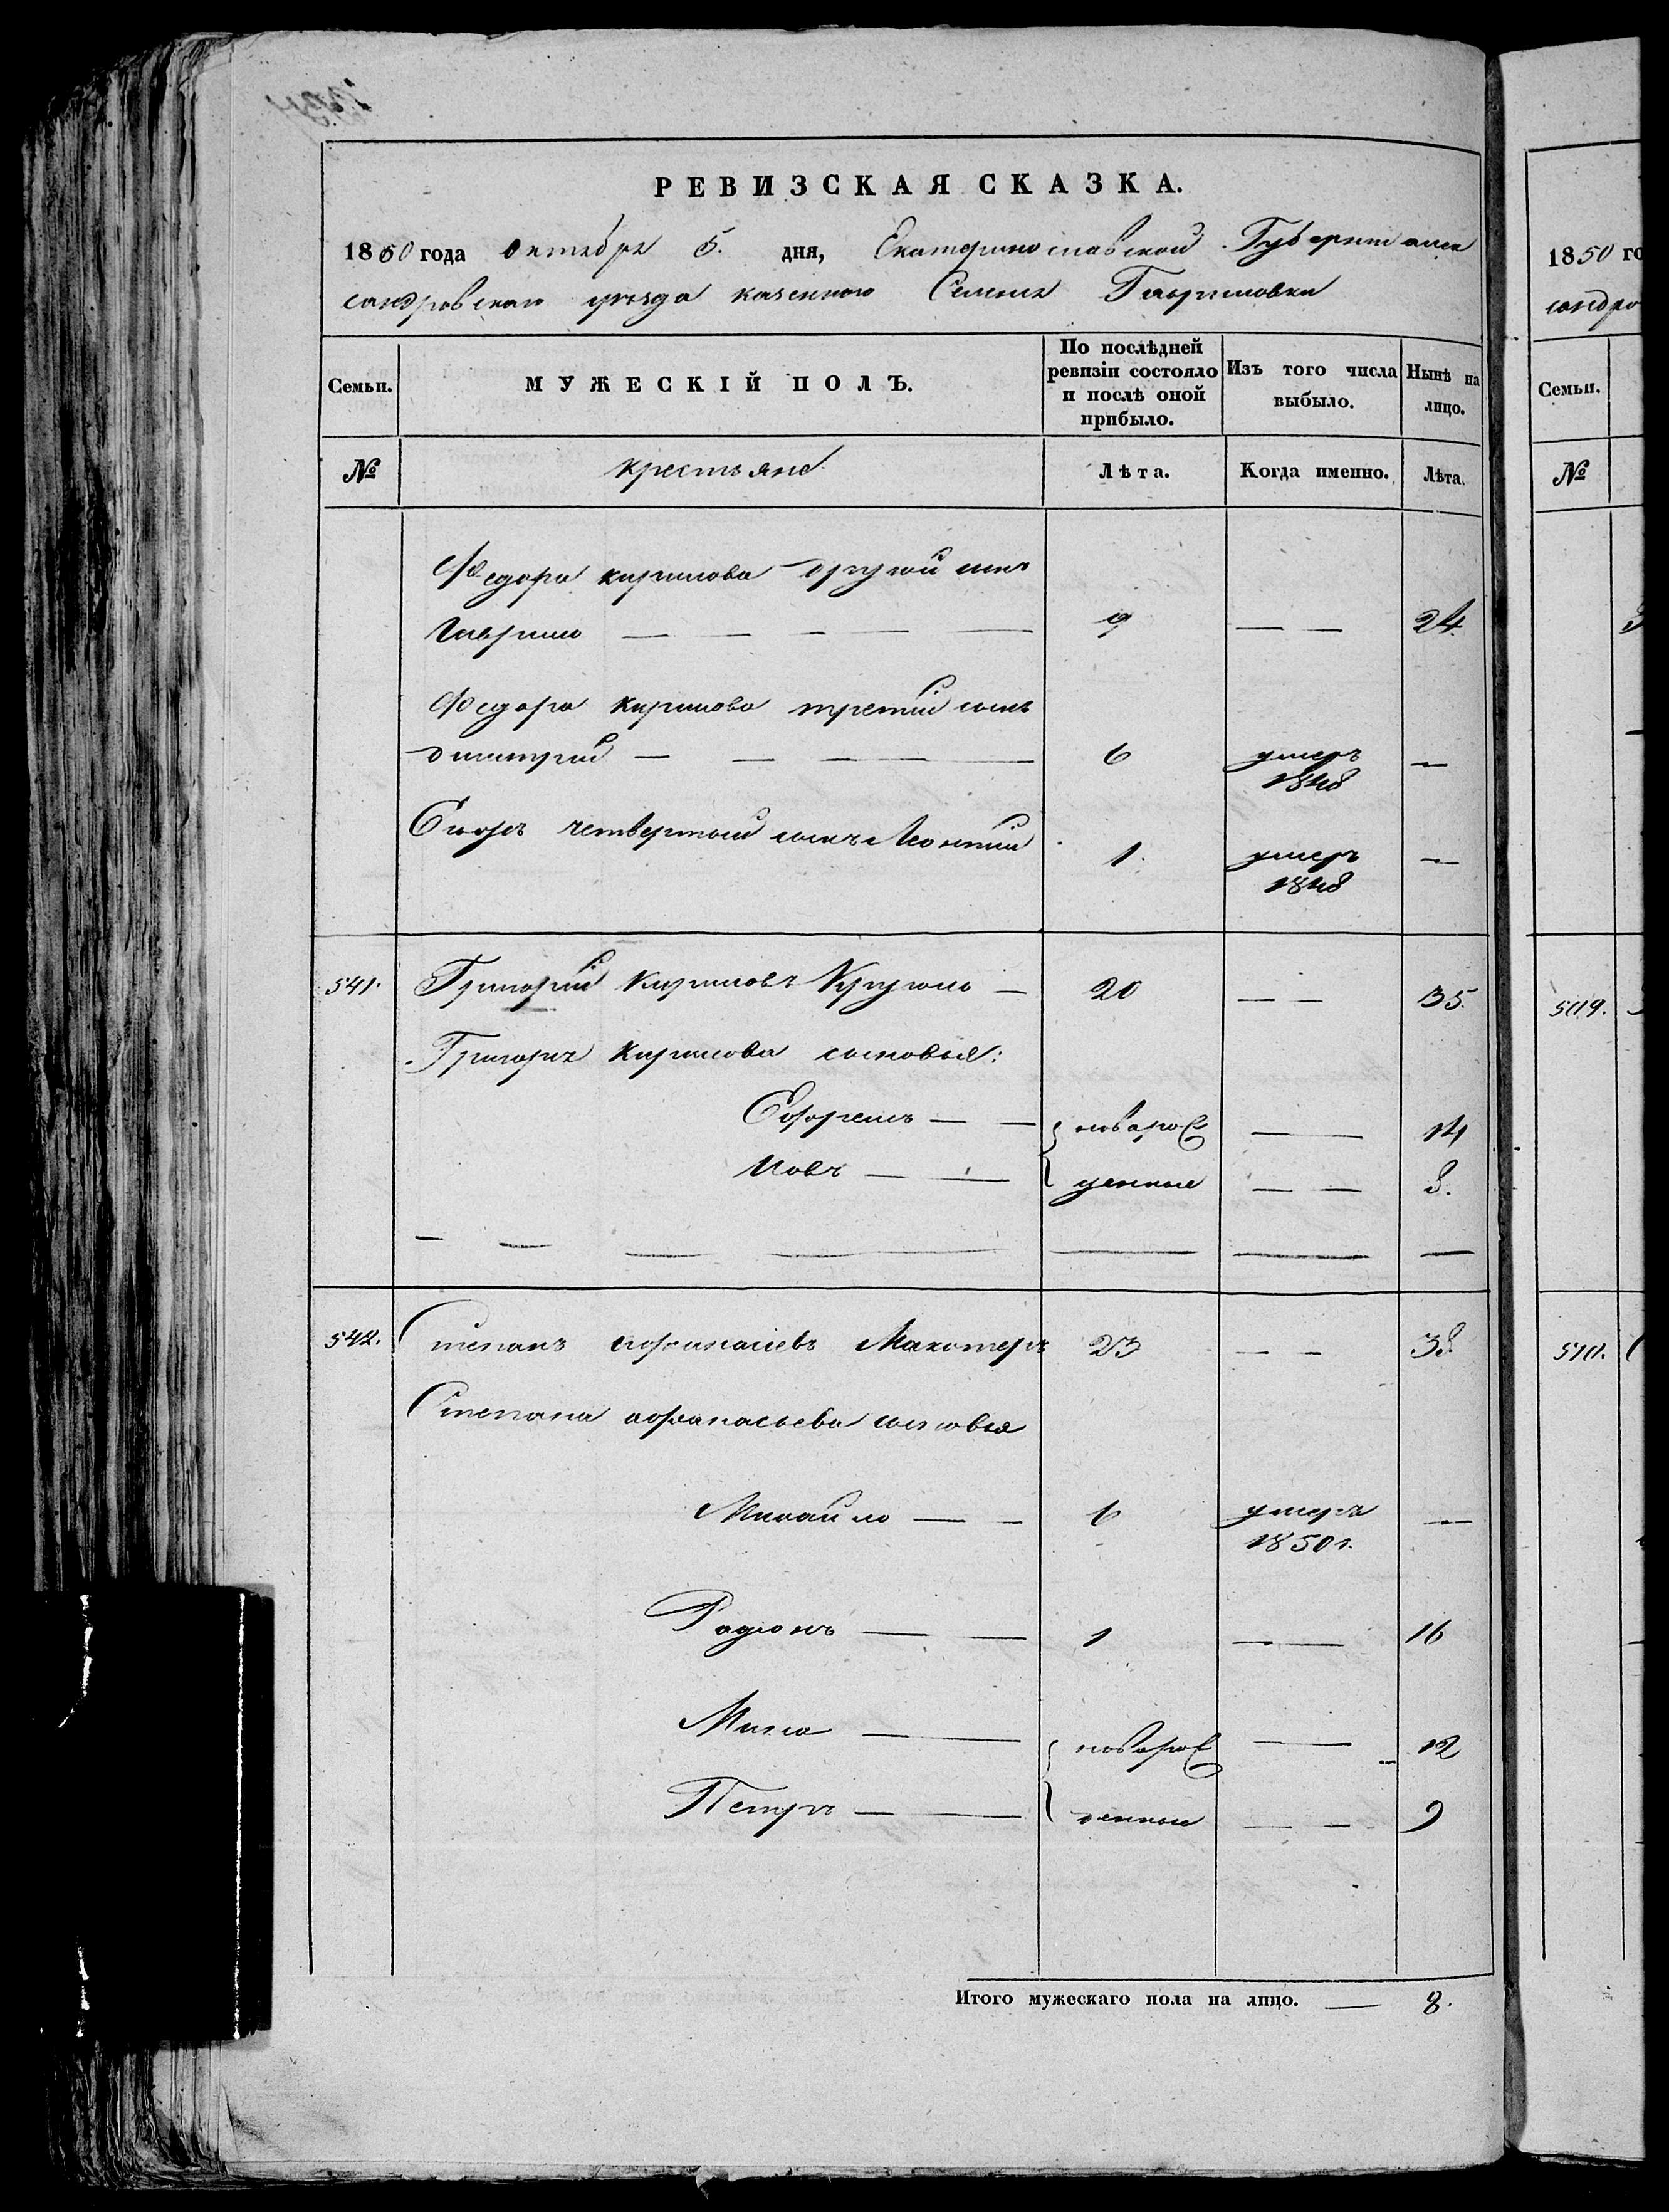 РЕВИЗСКАЯ СКАЗКА.
1850 года октября 5. дня, Екатеринославской Губернии алек
сандровскаго уезда казеннаго Селения Гавриловки
Семьи. МУЖЕСКІЙ ПОЛЪ. По послѣдней ревизіи состояло и послѣ оной прибыло. Изъ того числа выбыло. Нынѣ на лицо.
№ крестьяне Лѣта. Когда именно. Лѣта.
Федора кирилова другой сынъ
Гаврило — — — — — 9 — — 24.
Федора кирилова третій сынъ
дмитрій — — — — — 6 умеръ 1848 —
Егожъ четвертый сынъ Леонтій 1. умеръ 1848 —
541. Григорій Кириловъ Кругло — 20 — — 35.
Григорія кирилова сыновья:
Ефремъ — — новорож — 14
Иовъ — — денные — — 8.
542. Степанъ афанасіевъ Махотеръ 23 — — 38
Степана афанасьева сыновья
Михайло — — 6 умеръ 1850 г. —
Радионъ — — 1 — — 16
Мина — — новорож — 12
Петръ — — денные — — 9
Итого мужескаго пола на лицо. — 8.
1850 го
сандро
Семьи.
№
509.
510.